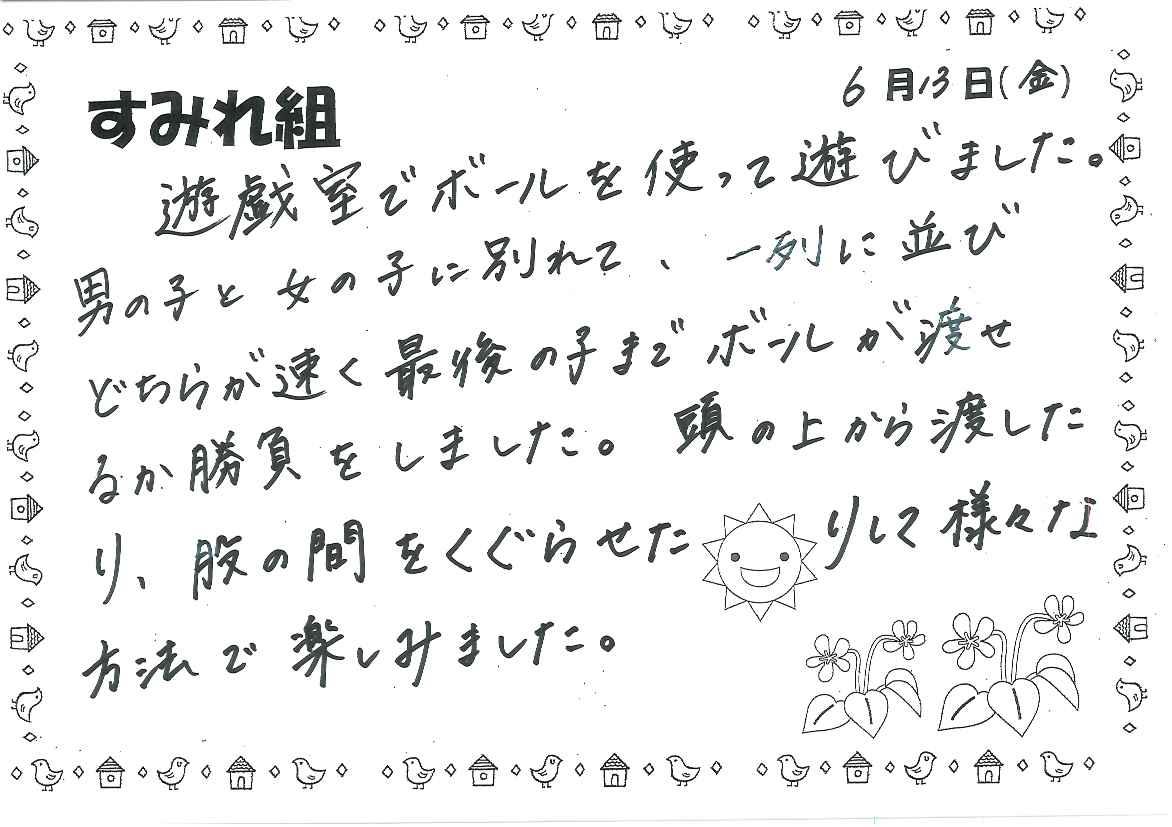 すみれ組
6月13日(金)
遊戯室でボールを使って遊びました。
男の子と女の子に別れて、一列に並び
どちらが速く最後の子までボールが渡せ
るか勝負をしました。頭の上から渡した
り、股の間をくぐらせたりして様々な
方法で楽しみました。